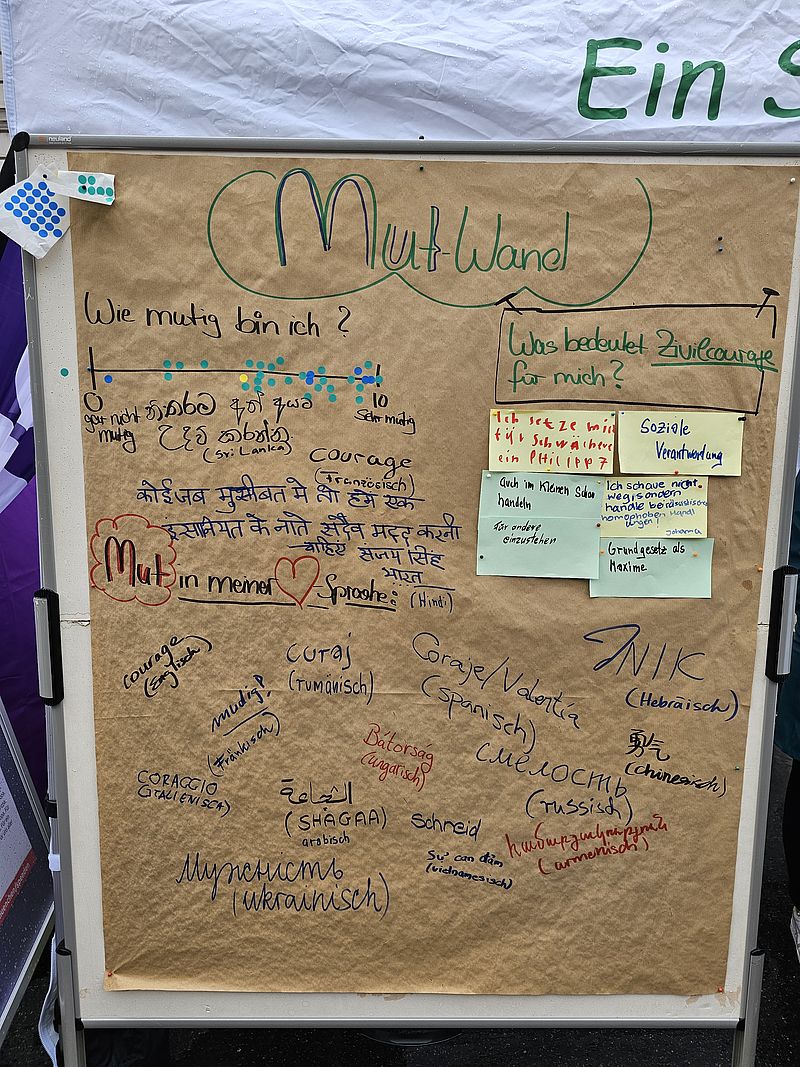 Ein S
neuland
Mut-Wand
Wie mutig bin ich?
0
10
gar nicht
mutig
sehr mutig
(Sri Lanka)
courage
(Französisch)
कोई जब मुसीबत मे हो हमे एक
इंसानियत के नाते सदैव मदद करनी
चाहिए संजय सिंह
भारत
(Hindi)
Was bedeutet Zivilcourage
für mich?
Ich setze mich
für Schwächere
ein PHILIPP 7
Soziale
Verantwortung
Auch im kleinen schon
handeln
für andere
einzustehen
Ich schaue nicht
weg, sondern
handle bei rassistisch
homophoben Handl
ungen!
Johanna
Grundgesetz als
Maxime
Mut in meiner Sprache:
courage
(Englisch)
curaj
(rumänisch)
Coraje/Valentía
(spanisch)
(Hebräisch)
mudig!
(Fränkisch)
Bátorság
(ungarisch)
смелость
(russisch)
勇气
(chinesisch)
CORAGGIO
(ITALIENISCH)
الشجاعة
(SHAGAA)
arabisch
Schneid
Sự can đảm
(vietnamesisch)
(armenisch)
Мужність
(ukrainisch)